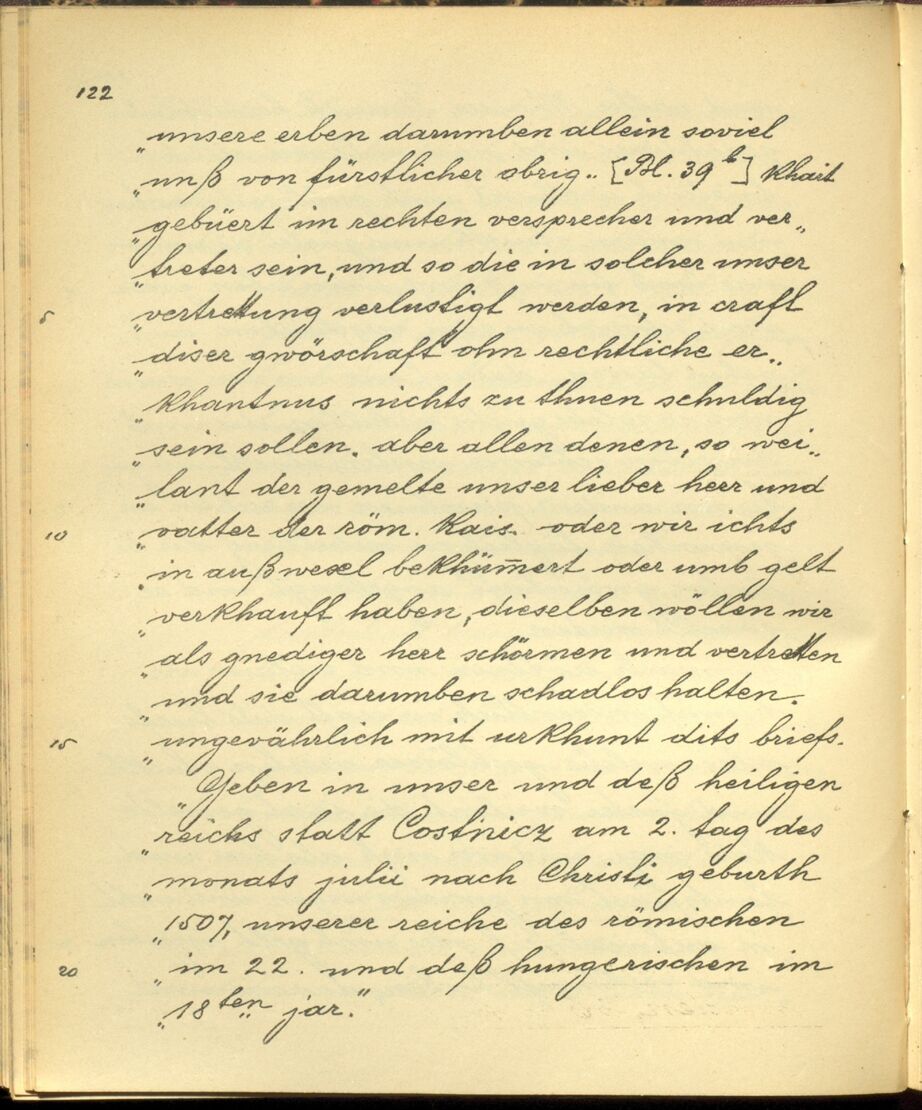 122
„unsere erben darumben allein soviel
„unß von fürstlicher obrig„ [Bl. 39b] khait
„gebüert im rechten versprecher und ver„
„treter sein, und so die in solcher unser
5 „vertrettung verlustigt werden, in craft
„diser gwörschaft ohn rechtliche er„
„khantnus nichts zu thuen schuldig
„sein sollen. aber allen denen, so wei„
„lant der gemelte unser lieber herr und
10 „vatter der röm. Kais. oder wir ichts
„in außwexel bekhüm̄ert oder umb gelt
„verkhauft haben, dieselben wöllen wir
„als gnediger herr schörmen und vertretten
„und sie darumben schadlos halten.
15 „ungevährlich mit urkhunt dits briefs.
„Geben in unser und deß heiligen
„reichs statt Costnicz am 2. tag des
„monats julii nach Christi geburth
„1507, unserer reiche des römischen
20 „im 22. und deß hungerischen im
„18ten jar."